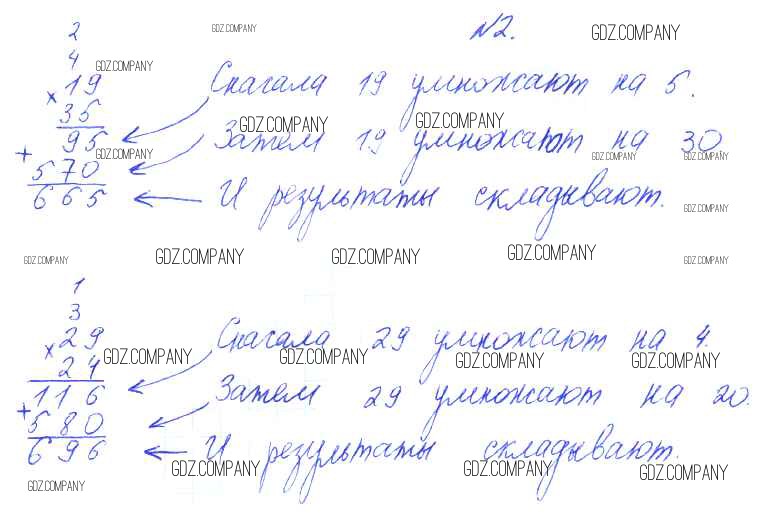 2
GDZ.COMPANY
N2.
GDZ.COMPANY
4
GDZ.COMPANY
×19 Сначала 19 умножают на 5.
35
GDZ.COMPANY GDZ.COMPANY
95 Затем 19 умножают на 30
GDZ.COMPANY GDZ.COMPANY GDZ.COMPANY
+
570
665 И результаты складывают.
GDZ.COMPANY
GDZ.COMPANY GDZ.COMPANY GDZ.COMPANY GDZ.COMPANY GDZ.COMPANY
1
3
×29 Сначала 29 умножают на 4.
24
GDZ.COMPANY GDZ.COMPANY GDZ.COMPANY GDZ.COMPANY
116 Затем 29 умножают на 20.
+
580
696 И результаты складывают.
GDZ.COMPANY GDZ.COMPANY GDZ.COMPANY
GDZ.COMPANY